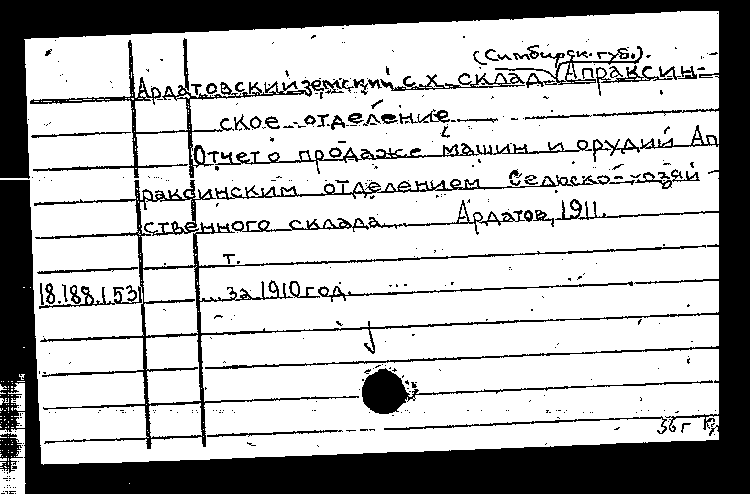 (Симбирск. губ.).
Ардатовский земский с.х. склад (Апраксин-
ское отделение
Отчет о продаже машин и орудий Ап
раксинским отделением Сельско-хозяй-
ственного склада. Ардатов, 1911.
т.
18.188.1.53 ... за 1910 год.
56 г